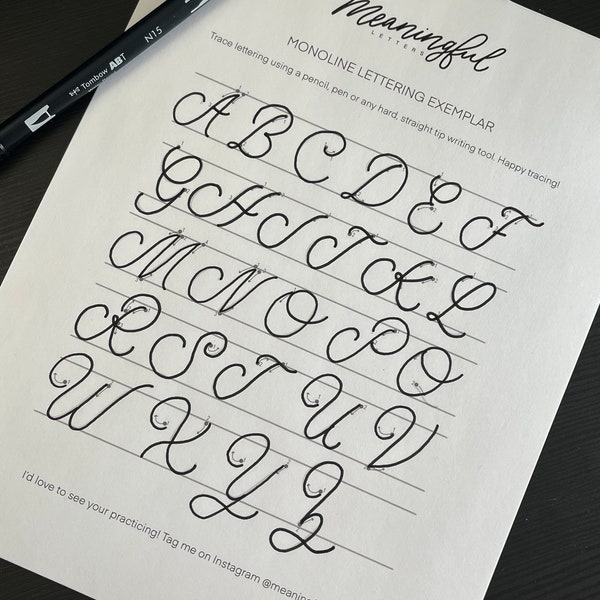 Meaningful
LETTERS
MONOLINE LETTERING EXEMPLAR
Trace lettering using a pencil, pen or any hard, straight tip writing tool. Happy tracing!
Tombow ABT N15
A B C D E F
G H I J K L
M N O P Q
R S T U V
W X Y Z
I'd love to see your practicing! Tag me on Instagram